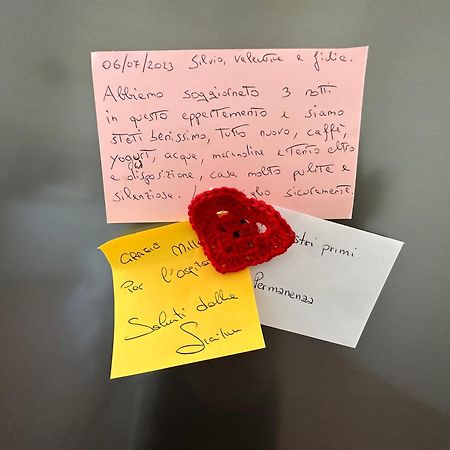 06/07/2023 Silvio, valentina e Giulia.
Abbiamo soggiornato 3 notti
in questo appartamento e siamo
stati benissimo, tutto nuovo, caffè,
yogurt, acqua, merendine e tanto altro
a disposizione, casa molto pulita e
silenziosa. sicuramente.
Grazie Mill
Per l'ospita
Saluti dalla
Sicilia
stri primi
Permanenza